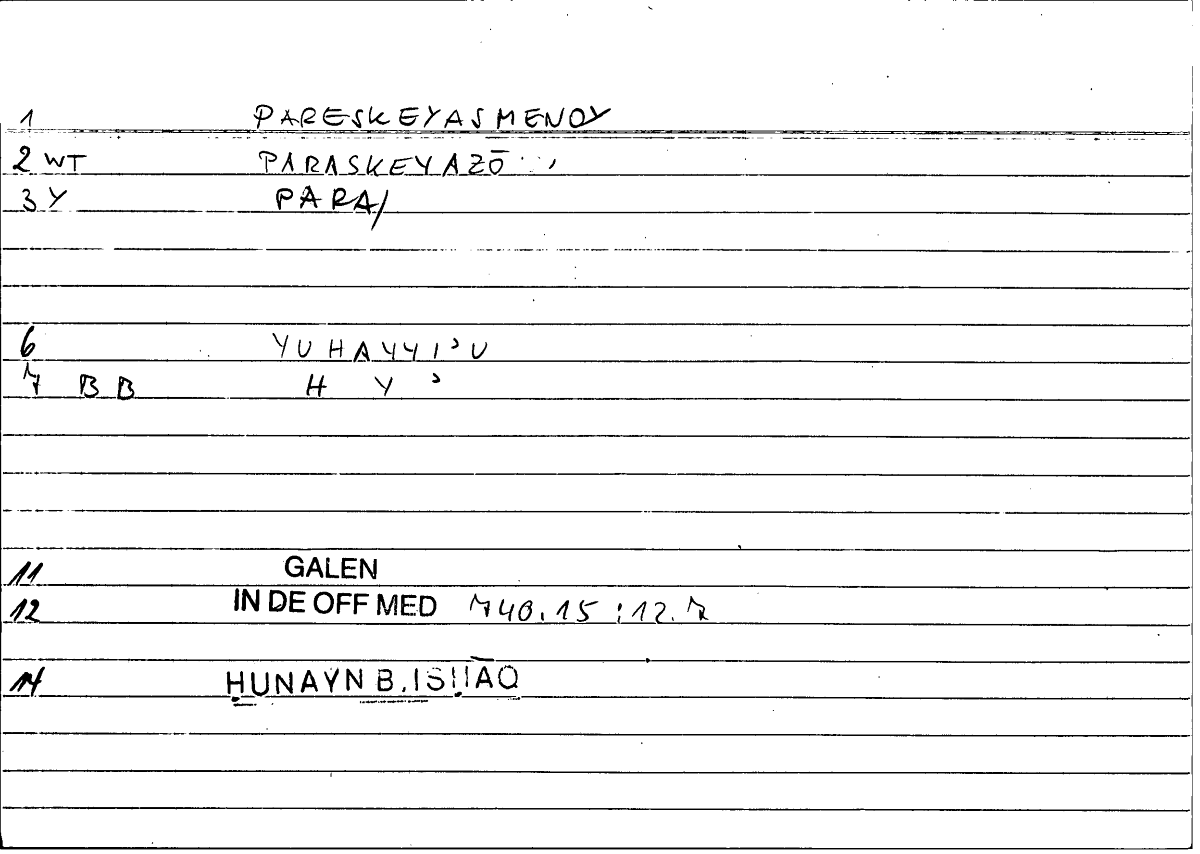 1 PARESKEYASMENOY
2 WT PARASKEYAZŌ
3 Y PARA/
6 YUHAYYIʾU
7 BB H Y ʾ
11 GALEN
12 IN DE OFF MED 740.15 : 12.7
14 ḤUNAYN B. ISḤĀQ